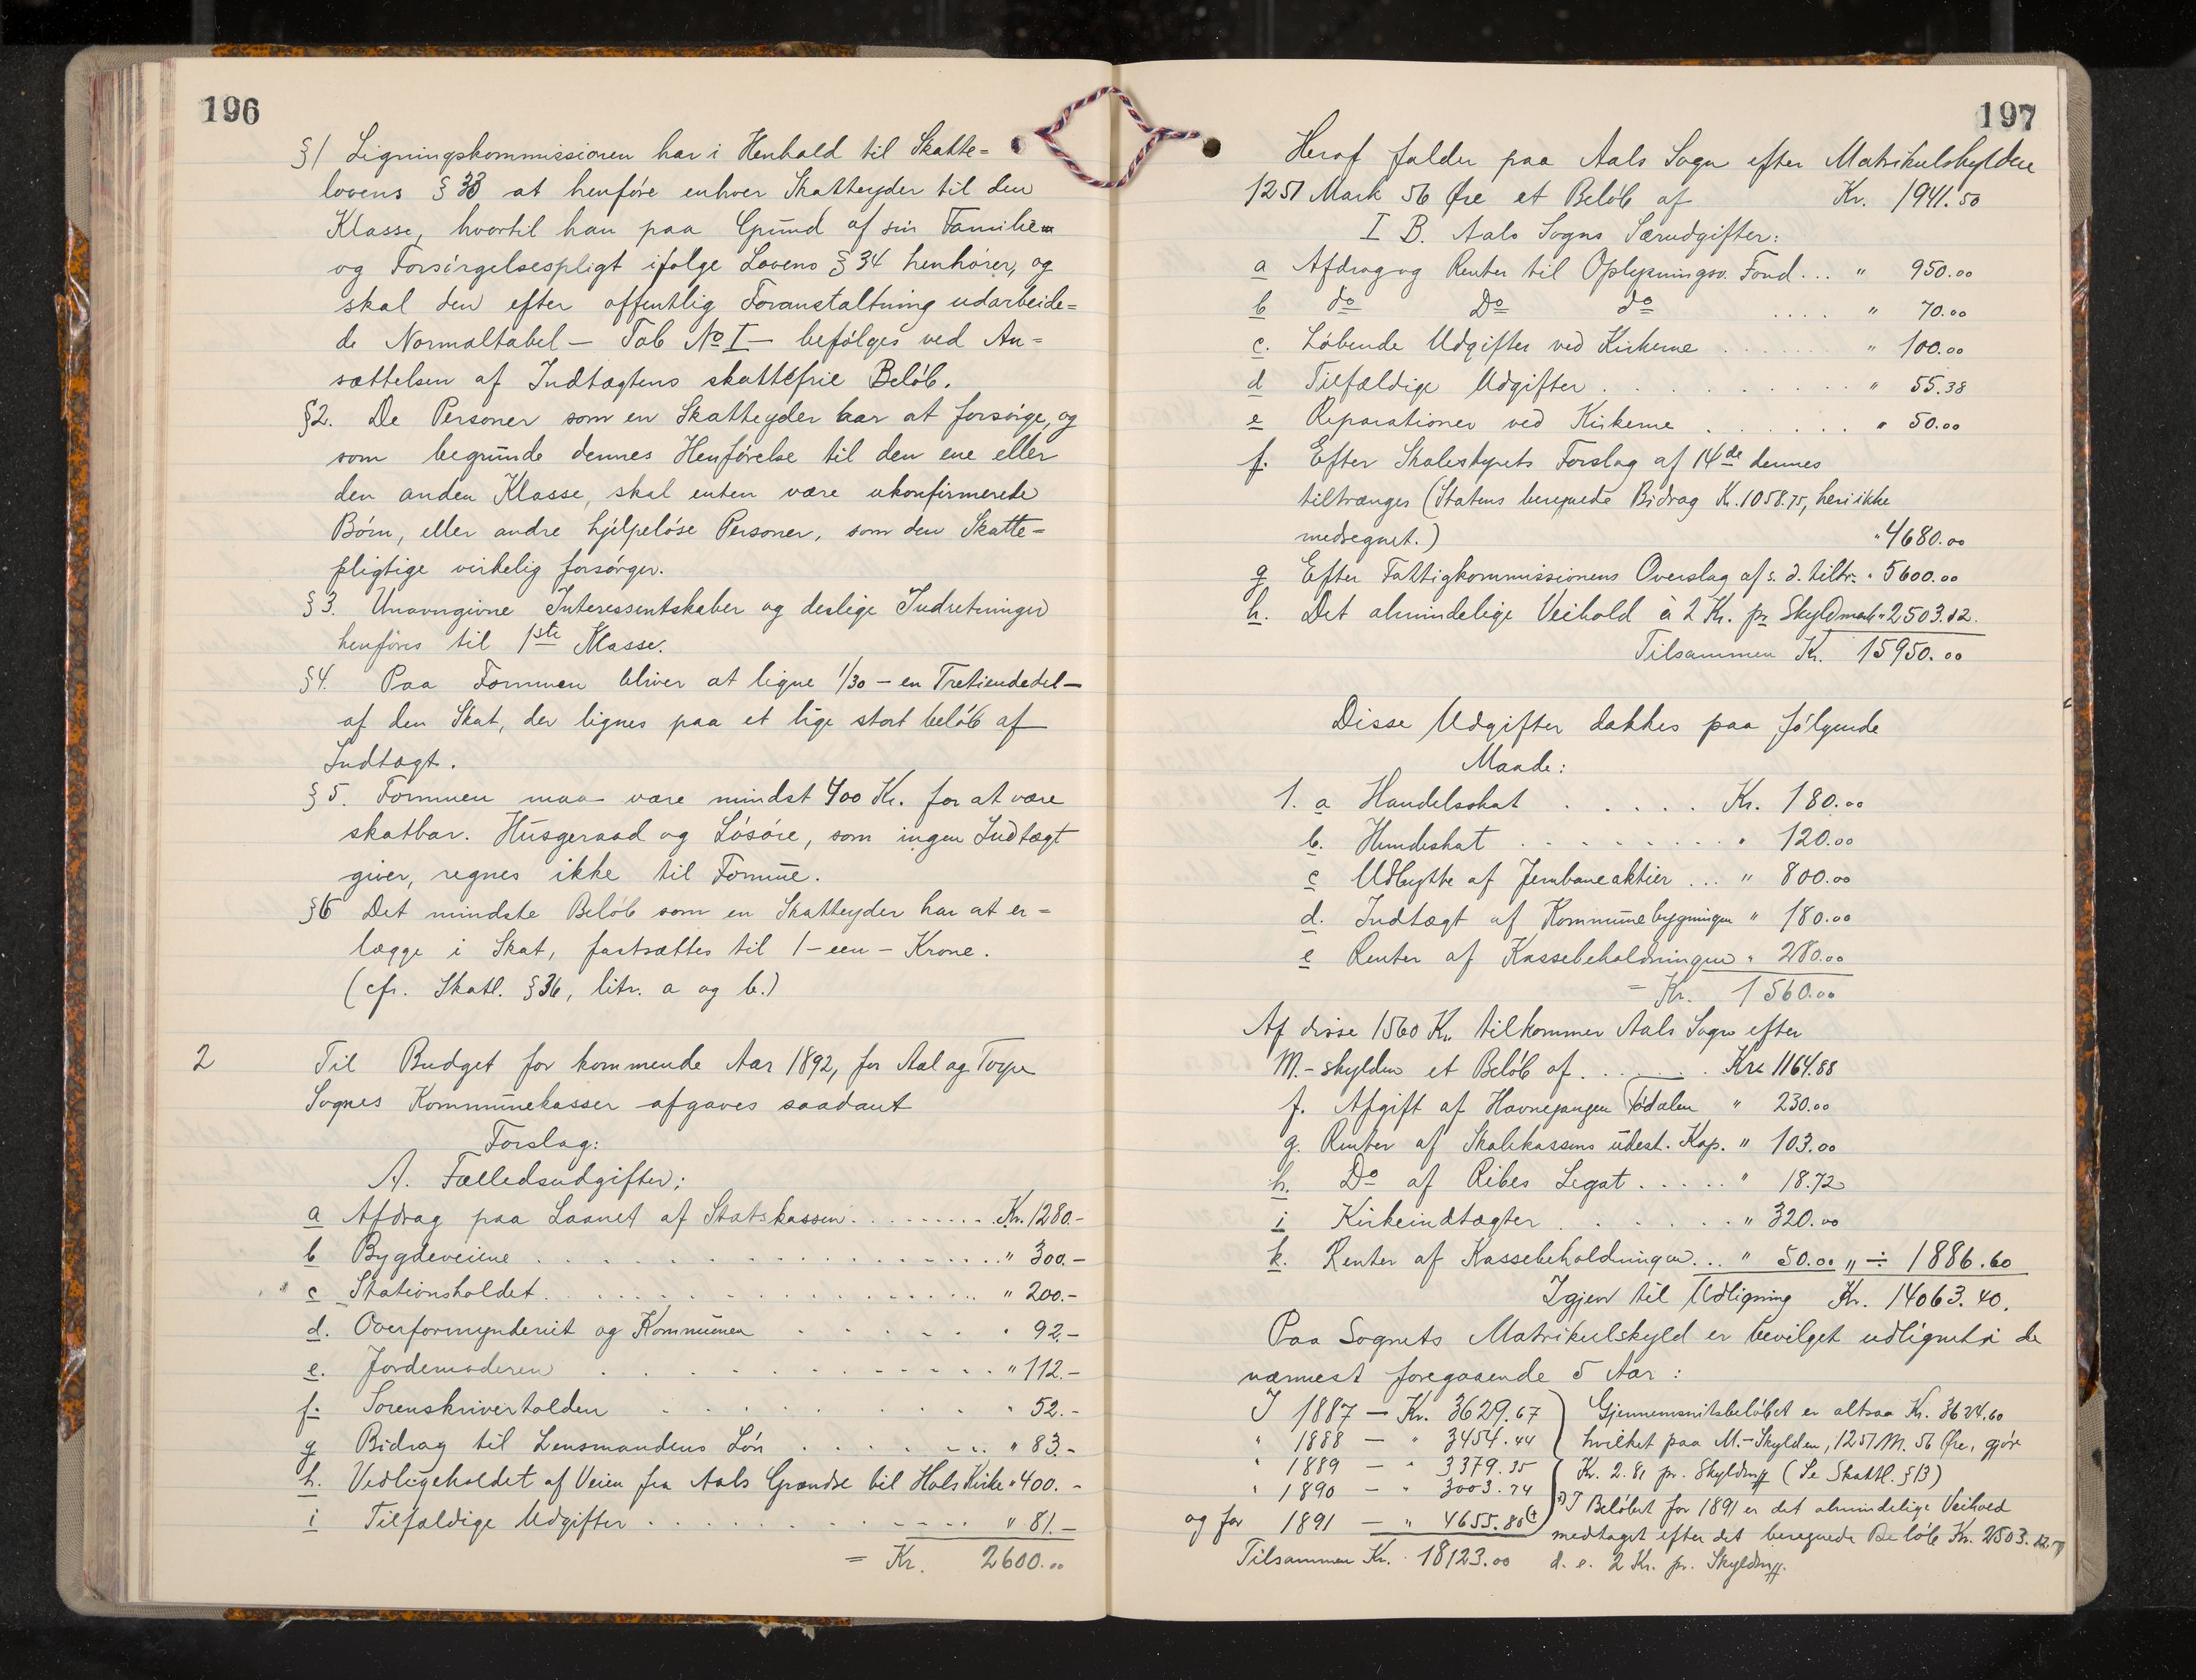 196
§1 Ligningskommissionen har i Henhold til Skatte=
lovens § 33 at henføre enhver Skatteyder til den
Klasse, hvortil han paa Grund af sin Familie
og Forsørgelsespligt ifølge Lovens § 34 henhører, og
skal den efter offentlig Foranstaltning udarbeide=
de Normaltabel — Tab No I — befølges ved An=
sættelsen af Indtægtens skattefrie Beløb.
§2. De Personer som en Skatteyder har at forsørge, og
som begrunde dennes Henførelse til den ene eller
den anden Klasse, skal enten være ukonfirmerede
Børn, eller andre hjelpeløse Personer, som den Skatte=
pligtige virkelig forsørger.
§3. Unavngivne Interessentskaber og deslige Indretninger
henføres til 1ste Klasse.
§4. Paa Formuen bliver at ligne 1/30 — en Tretiendedel —
af den Skat, der lignes paa et lige stort beløb af
Indtægt.
§5. Formuen maa være mindst 400 Kr. for at være
skatbar. Husgeraad og Løsøre, som ingen Indtægt
giver, regnes ikke til Formue.
§6 Det mindste Beløb som en Skatteyder har at er=
lægge i Skat, fastsættes til 1 - een - Krone.
(cfr. Skatl. §36, litr. a og b.)
2 Til Budget for kommende Aar 1892, for Aal og Torpe
Sognes Kommunekasser afgaves saadant
Forslag:
A. Fælledsudgifter:
a Afdrag paa Laanet af Statskassen ......... Kr. 1280.-
b Bygdeveiene ......... " 300.-
c Stationsholdet ......... " 200.-
d. Overformynderiet og Kommunen ..... " 92.-
e. Jordemoderen ......... " 112.-
f. Sorenskrivertolden ....... " 52.-
g Bidrag til Lensmandens Løn ....... " 83.-
h. Vedligeholdet af Veien fra Aals Grændse til Hols Kirke " 400.-
i Tilfældige Udgifter ......... " 81.-
= Kr. 2600.00
197
Heraf falder paa Aals Sogn efter Matrikulskylden
1251 Mark 56 Øre et Beløb af Kr. 1941.50
I B. Aals Sogns Særudgifter:
a Afdrag og Renter til Oplysningsv. Fond ... " 950.00
b do Do do .... " 70.00
c. Løbende Udgifter ved Kirkerne ....... " 100.00
d Tilfældige Udgifter ......... " 55.38
e Reparationer ved Kirkerne ....... " 50.00
f. Efter Skolestyrets Forslag af 14de dennes
tiltrænges (Statens beregnede Bidrag Kr. 1058.75, heri ikke
medregnet.) " 4680.00
g Efter Fattigkommissionens Overslag af s. d. tiltr. " 5600.00
h. Det almindelige Veihold à 2 Kr. pr Skyldmark " 2503.12.
Tilsammen Kr. 15950.00
Disse Udgifter dækkes paa følgende
Maade:
1. a Handelsskat ..... Kr. 180.00
b. Hundeskat ........ " 120.00
c Udbytte af Jernbaneaktier ... " 800.00
d. Indtægt af Kommunebygningen " 180.00
e Renter af Kassebeholdningen " 280.00
= Kr. 1560.00
Af disse 1560 Kr. tilkommer Aals Sogn efter
M.-skylden et Beløb af ....... Kr. 1164.88
f. Afgift af Havnegangen Vødalen " 230.00
g. Renter af Skolekassens udest. Kap. " 103.00
h. Do af Ribes Legat ..... " 18.72
i Kirkeindtægter ...... " 320.00
k. Renter af Kassebeholdningen ... " 50.00 " ÷ 1886.60
Igjen til Udligning Kr. 14063.40.
Paa Sognets Matrikulskyld er bevilget udlignet i de
nærmest foregaaende 5 Aar:
I 1887 — Kr. 3629.67
" 1888 — " 3454.44
" 1889 — " 3379.35
" 1890 — " 3003.74
og for 1891 — " 4655.80 (+
Tilsammen Kr. 18123.00
Gjennemsnitsbeløbet er altsaa Kr. 3624.60
hvilket paa M.-Skylden, 1251 M. 56 Øre, gjør
Kr. 2.81 pr. Skyldm (Se Skattl. §13)
+) I Beløbet for 1891 er det almindelige Veihold
medtaget efter det beregnede Beløb Kr. 2503.12
d. e. 2 Kr. pr. Skyldm.